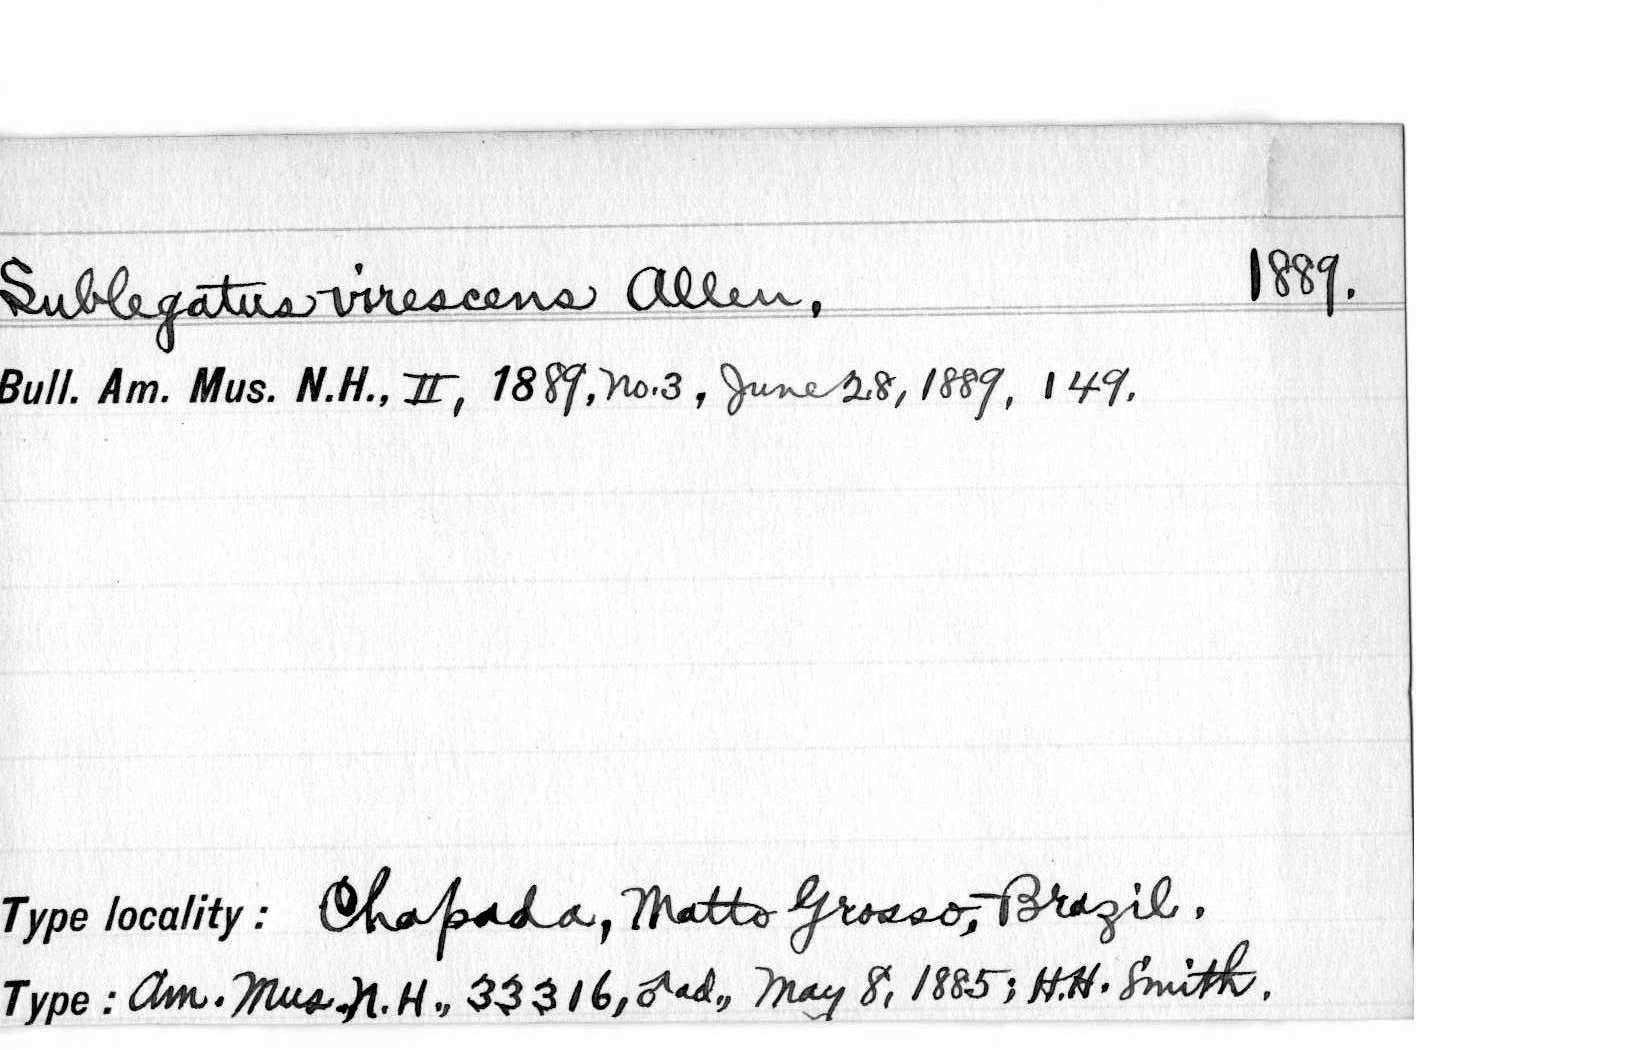 Sublegatus virescens Allen, 1889.
Bull. Am. Mus. N.H., II, 1889, No. 3, June 28, 1889, 149.
Type locality: Chapada, Matto Grosso, Brazil.
Type: Am. Mus. N.H., 33316, ♂ ad., May 8, 1885; H.H. Smith.